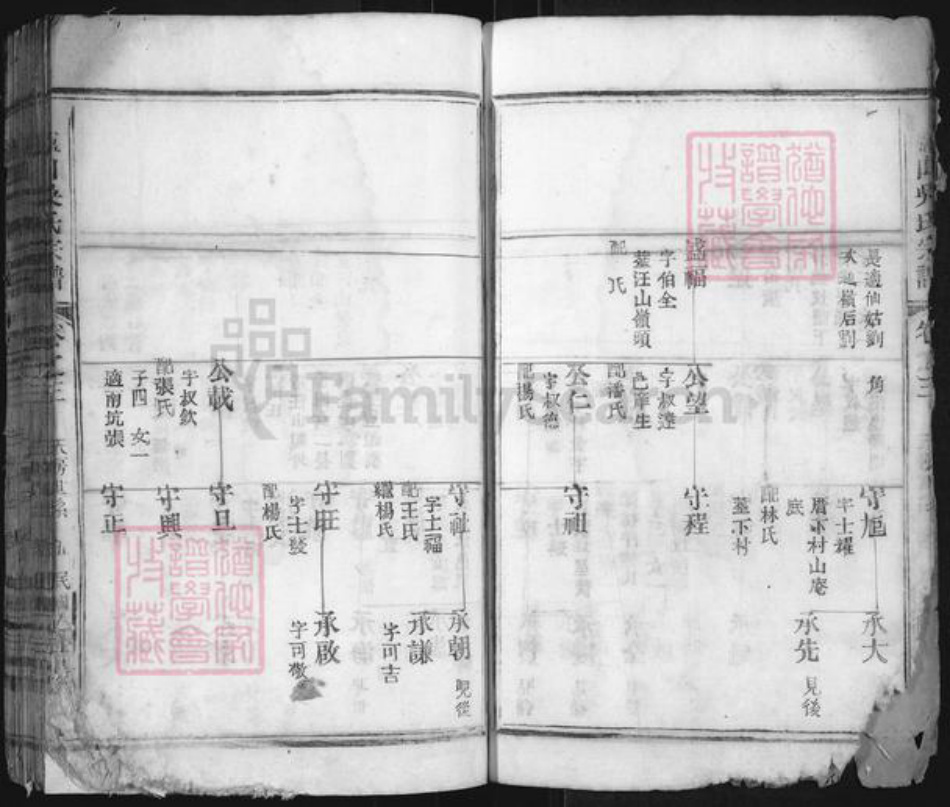 吳氏宗譜
長適仙姑劉
嶺后劉
角
守
字士耀
厝下村山庵
底
配林氏
墓下村
承大
承先
見後
盛福
字伯全
葬汪山嶺頭
配 氏
公望
字叔達
邑庠生
配潘氏
守程
公仁
字叔德
配楊氏
守祖
守祉
字士福
配王氏
繼楊氏
承朝
見後
承謙
字可吉
守旺
字士發
配楊氏
承啟
字可
公載
字叔欽
配張氏
子四 女一
適南坑張
守旦
守興
守正
吳氏宗譜
卷之三
FamilySearch